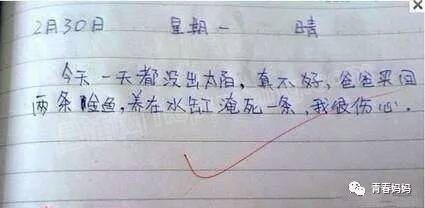 2月30日 星期一 晴
今天一天都没出太阳,真不好,爸爸买回
两条脸鱼,养在水缸淹死一条,我很伤心.
青春妈妈